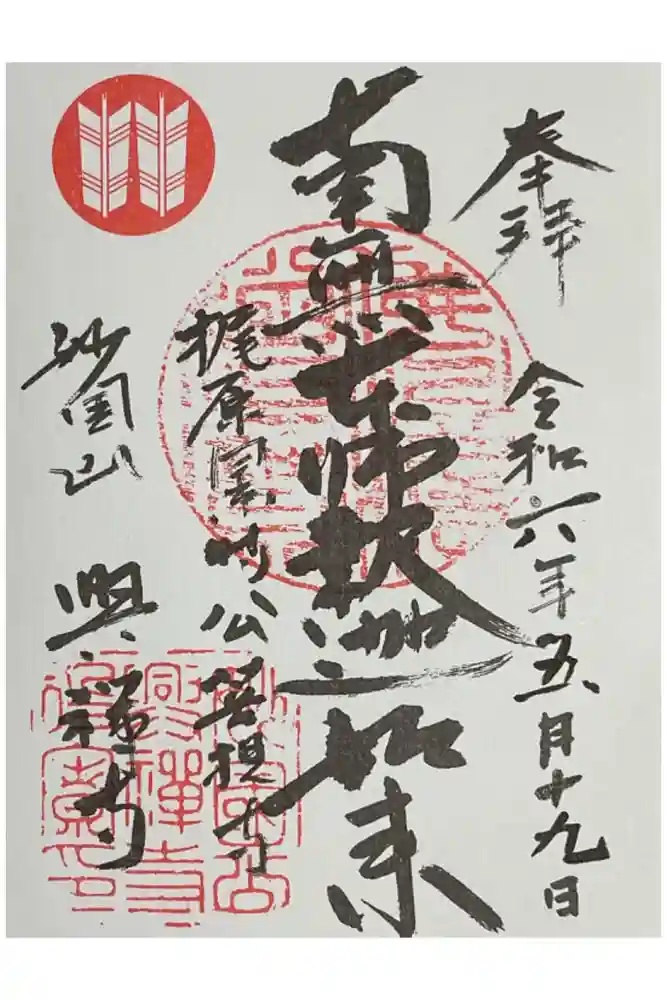 奉拝
令和六年五月十九日
南無本師釈迦如来
梶原景時公菩提寺
妙国山
興禅寺